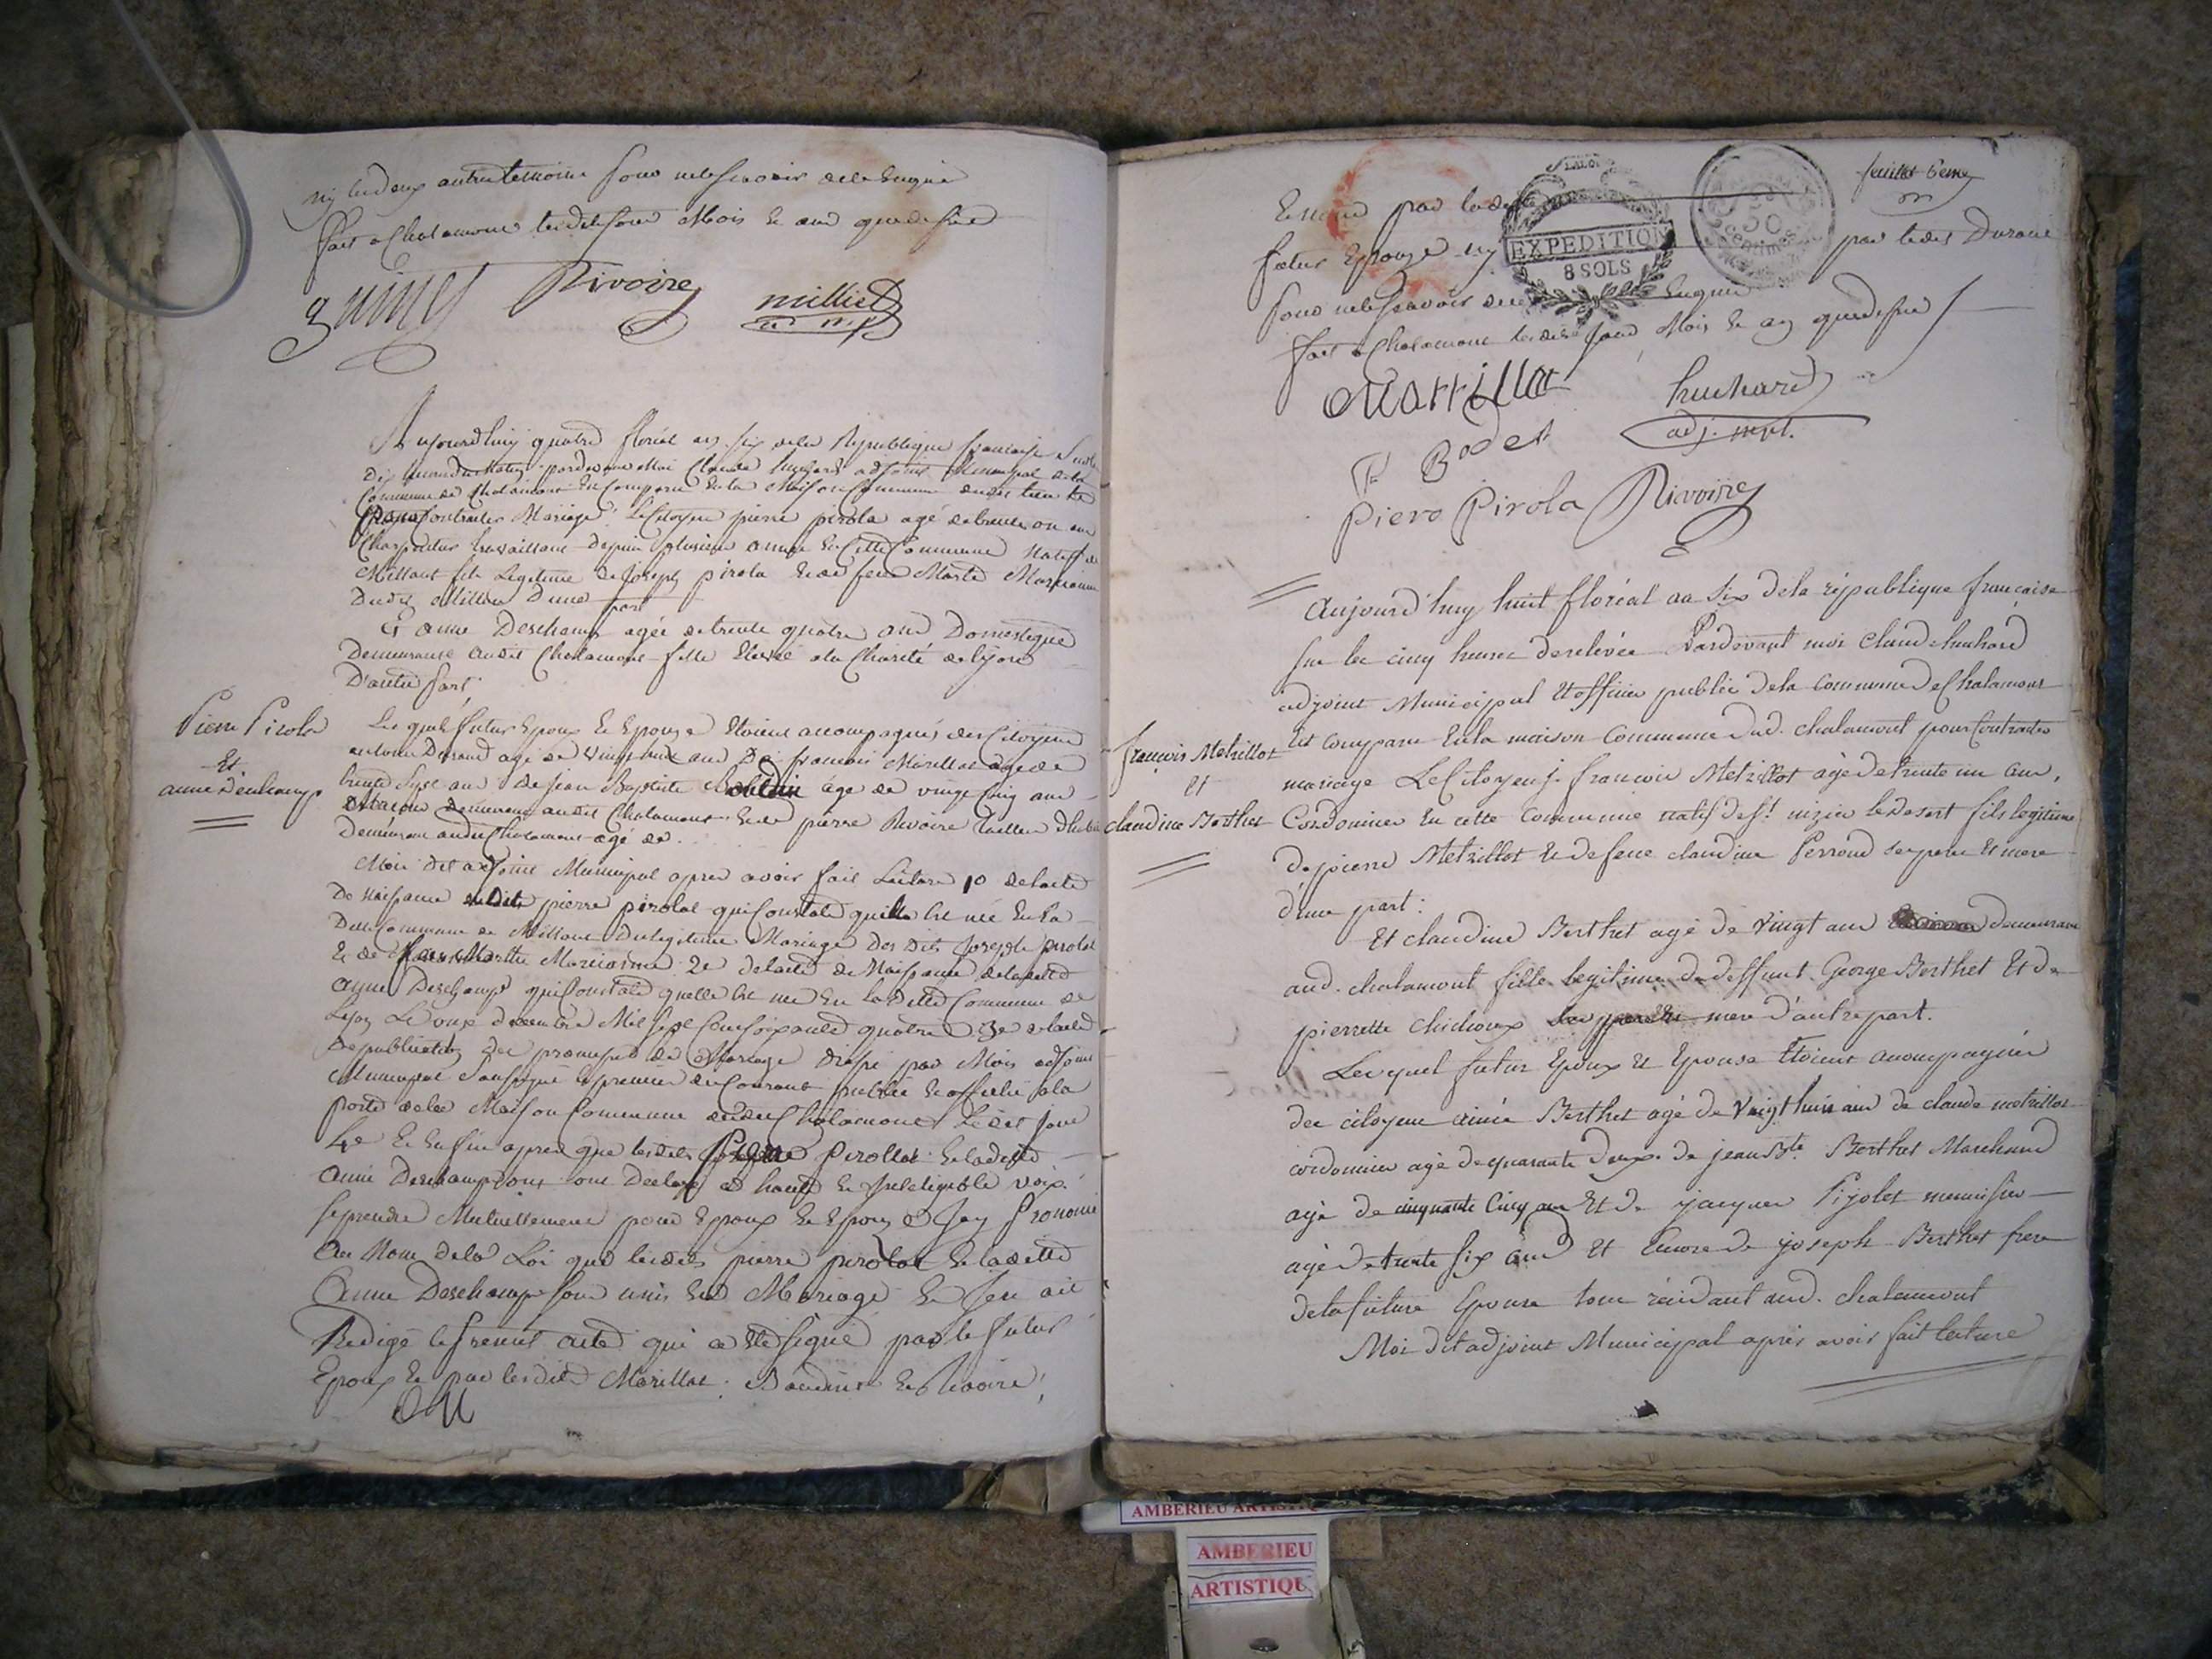 ny les deux autres temoins pour ne le scavoir de ce enquis
fait a Chalamont lesdits jour Mois et an que dessus
guinet Rivoire milliet
Aujourd'huy quatre floréal an six de la Republique francaise sur les
dix heures du Matin pardevant Moi Claude huchard adjoint Municipal de la
Commune de Chalamont Est Comparu En la Maison Commune dudit lieu
pour Contracter Mariage Le Citoyen pierre pirola agé de trente un ans
Charpentier travaillant depuis plusieurs années En Cette Commune Natif de
Millant fils Legitime de Joseph pirola Et de feue Marte Marianne
Dudit Millan D'une part
Et anne Deschamps agée de trente quatre ans Domestique
Demeurante audit Chalamont fille Elevée a la Charité de lyon
D'autre part
Pierre Pirola
Et
anne Deschamps
Les quels futur Epoux Et Epouse Etoient accompagnés des Citoyens
antoine Durand agé de vingt huit ans De francois Morillat agé de
trente Sept ans de jean Baptiste Boudin âge de vingt Cinq ans
Demeurant audit Chalamont Et de pierre Rivoire tailleur d'habit
Demeurant audit Chalamont agé de
Moi dit adjoint Municipal apres avoir fait Lecture 1o de l'acte
De Naissance dudit pierre pirolat qui Constate qu'il Est né En la
Dite Commune de Millant Du legitime Mariage Des dits Joseph pirolat
Et de Marthe Marianne 2e de l'acte de Naissance de ladite
anne Deschamps qui Constate quelle Est née En la ditte Commune de
Lyon Le onze decembre Mil sept Cent soixante quatre 3e de l'acte
De publication Des promesses de Mariage Dressé par Moi adjoint
Municipal Soussigné le premier du Courant publié Et affiché a la
porte de la Maison Commune dudit Chalamont Ledit jour
4e Et Enfin apres que lesdits pierre Pirollat Et ladite
anne Deschamps ont Declaré a haute Et Intelligible voix
se prendre Mutuellement pour Epoux Et Epouse J'ay prononcé
au Nom de la Loi que lesdits pierre pirolat Et laditte
Anne Deschamps sont unis En Mariage Et J'en ait
Redigé le present acte qui a Eté signé par le futur
Epoux Et par lesdits Morillat Baudin Et Rivoire
feuillet 6eme
Et non par ladite
future Epouse ny par ledit Durand
pour ne le scavoir de ce Enquis
fait a Chalamont lesdits jour Mois Et an que dessus
LA LOI
EXPEDITION
8 SOLS
50
Centimes
Marrillat huchard
adj. mpl.
Bodet
piero Pirola Rivoire
aujourd'huy huit floréal an six de la république francaise
sur les cinq heures de relévée Pardevant moi Claude huchard
adjoint Municipal Et officier public de la commune de Chalamont
Est comparu En la maison Commune dud. chalamont pour Contracter
francois Metrillot
Et
claudine Berthet
mariage Le Citoyen j. francois Metrillot agé de trente un ans,
Cordonnier En cette Commune natif de St. nizier le desert fils legitime
de pierre Metrillot Et de feue claudine Perroud ses pere Et mere
d'une part:
Et claudine Berthet agé de vingt ans demeurant
aud. chalamont fille legitime de deffunt George Berthet Et de
pierrette chicloux mere d'autre part.
Lesquel futur Epoux Et Epouse Etoient accompagnés
des citoyens aimée Berthet agé de vingt huit ans de claude metrillot
cordonnier agé de quarante deux. de jean Bte. Berthet Marchand
agé de cinquante Cinq ans Et de jacques Pijolet menuisier
agé de trente six ans Et Encore de joseph Berthet frere
de la future Epouse tous résidant aud. chalamont
Moi dit adjoint Municipal après avoir fait lecture
AMBERIEU ARTISTIQUE
AMBERIEU
ARTISTIQU